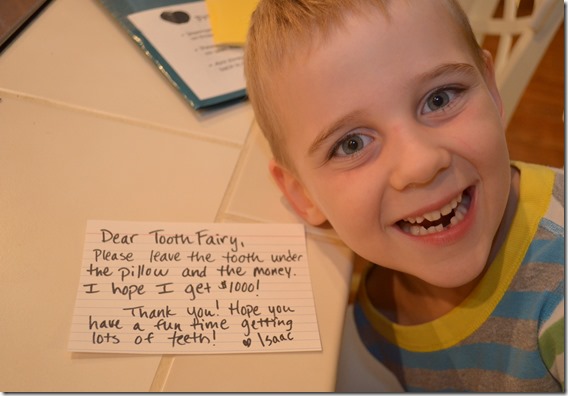 Dear Tooth Fairy,
Please leave the tooth under
the pillow and the money.
I hope I get $1000!
Thank you! Hope you
have a fun time getting
lots of teeth! ♥ Isaac